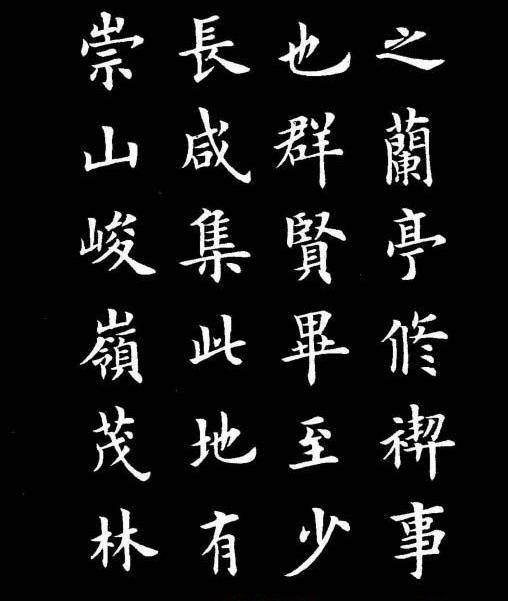 之蘭亭修禊事
也群賢畢至少
長咸集此地有
崇山峻嶺茂林